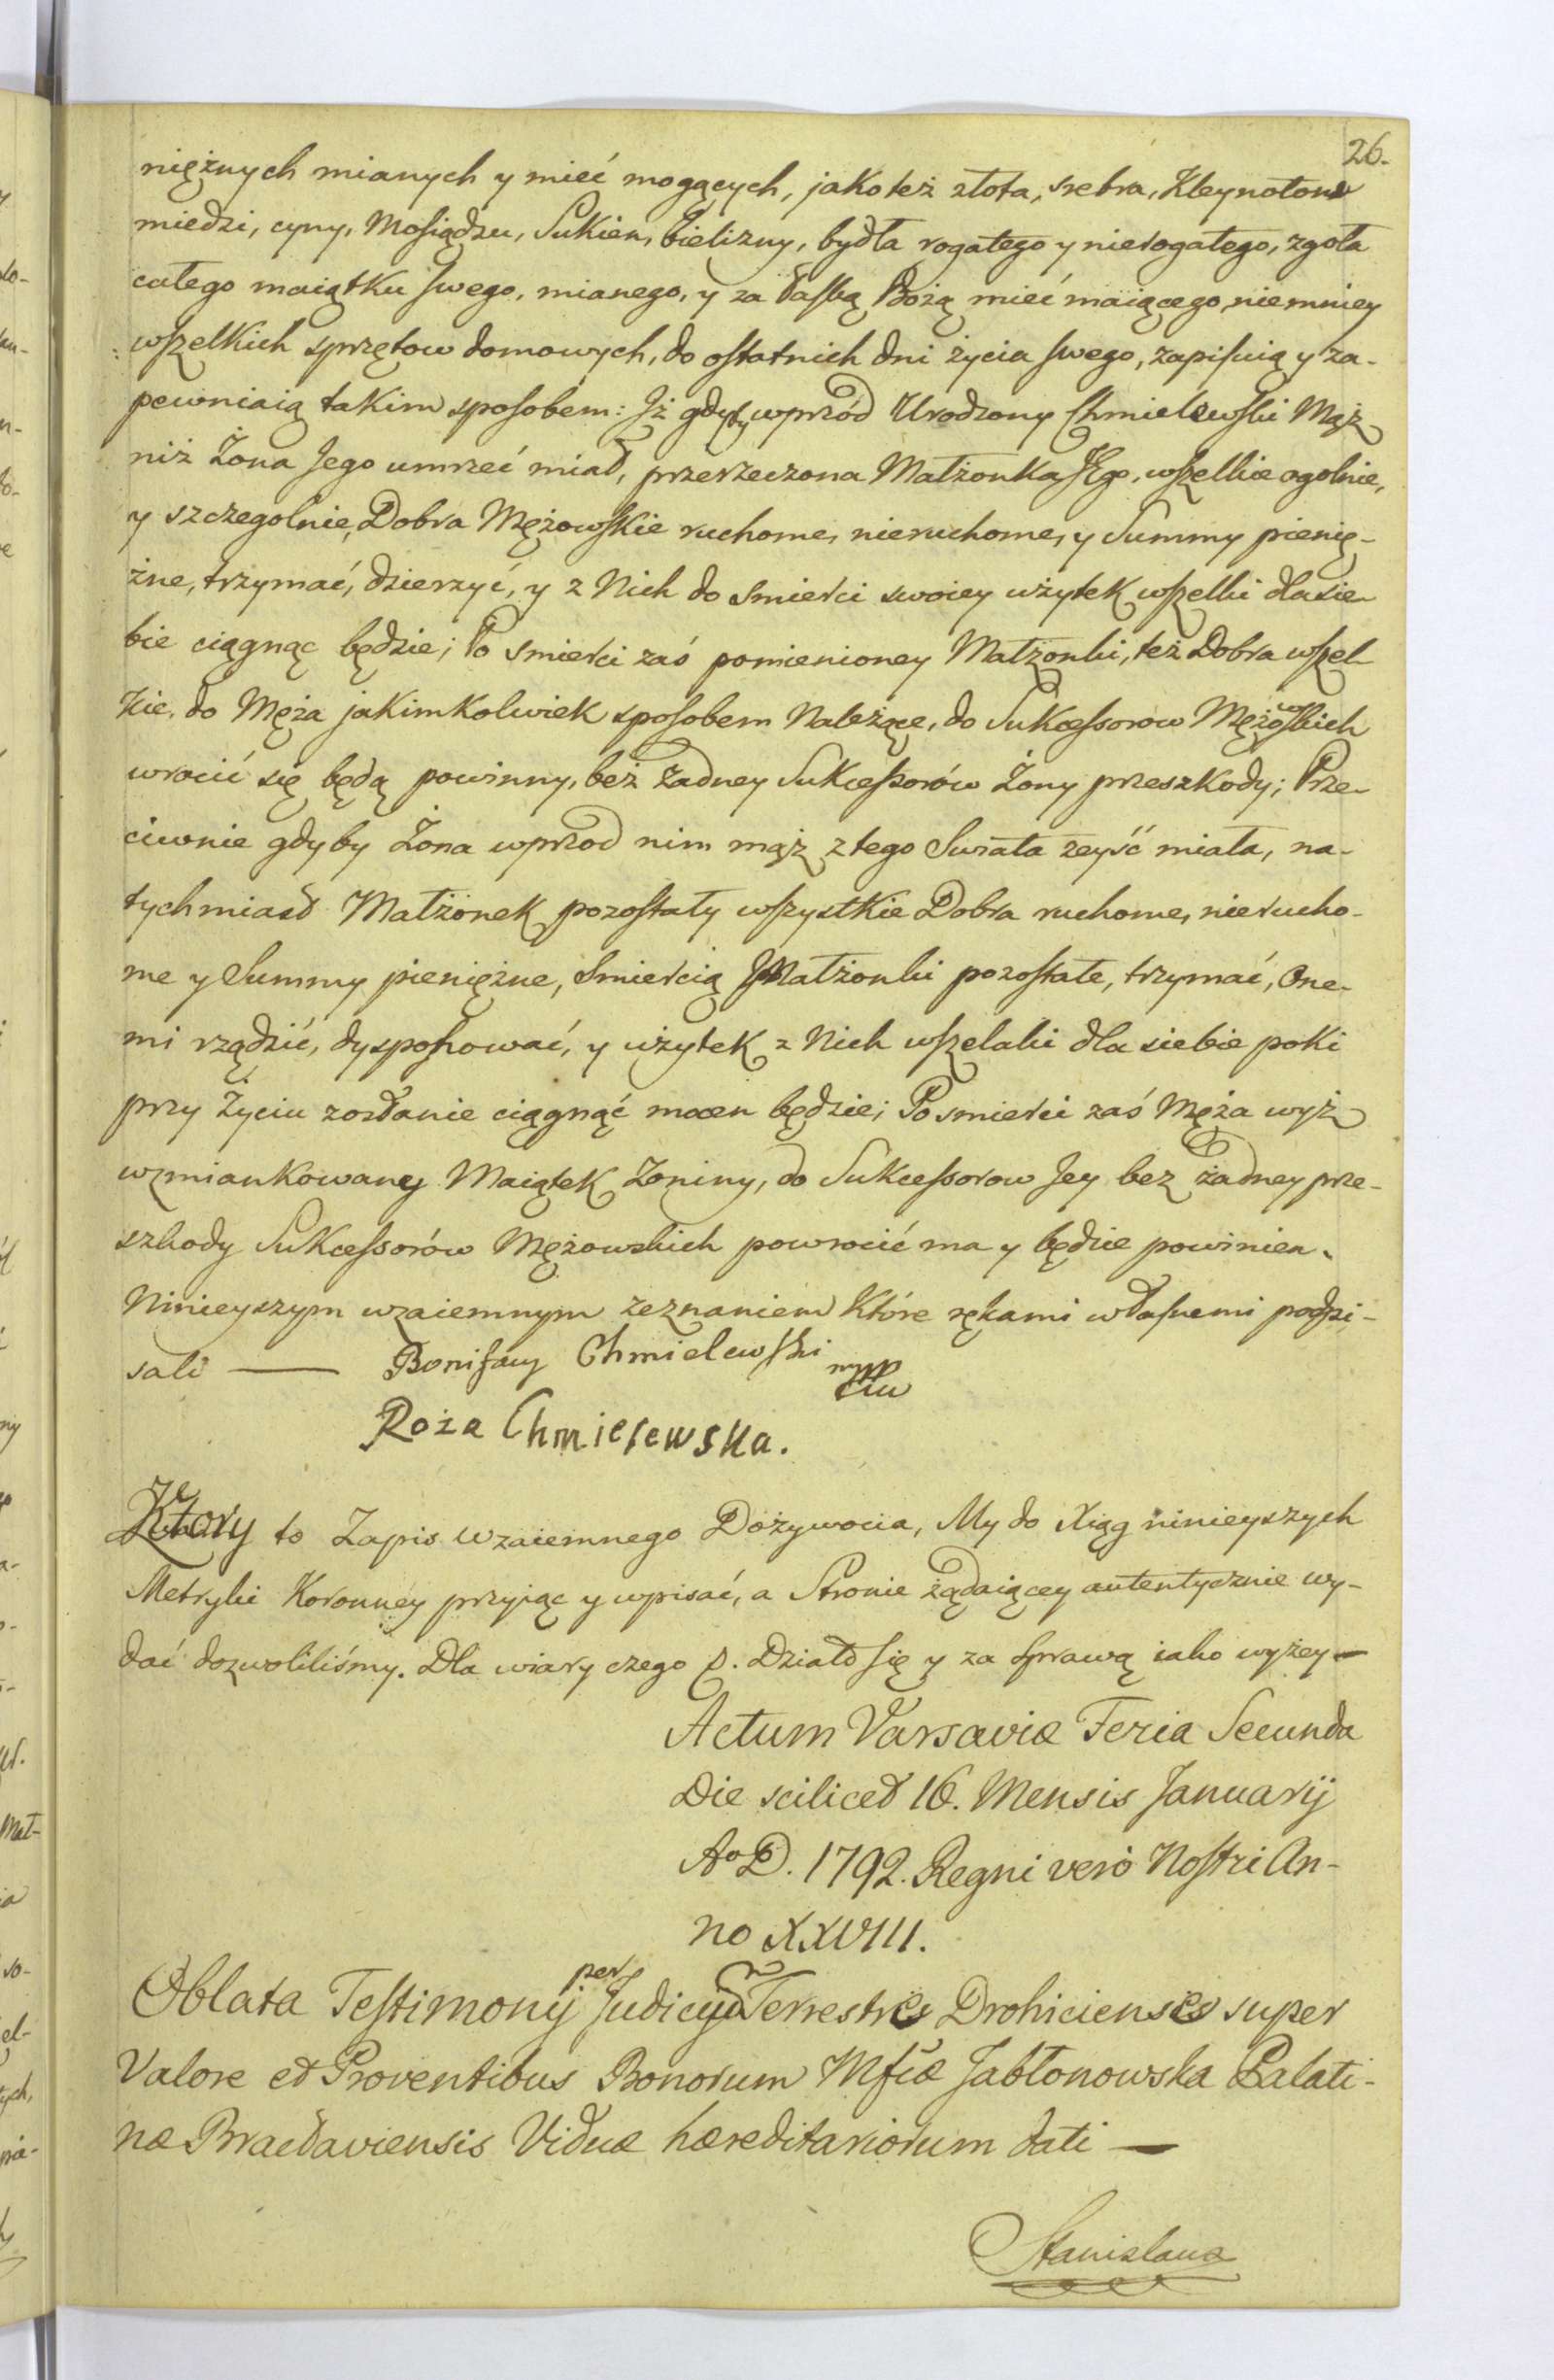 26.
niężnych mianych y mieć mogących, jako też złota, srebra, Kleynotow
miedzi, cyny, Mosiądzu, Sukien, bielizny, bydła rogatego y nierogatego, zgoła
całego maiątku swego, mianego, y za łaską Bożą mieć maiącego, niemniey
wszelkich sprzętow domowych, do ostatnich dni życia swego, zapisuią y za-
pewniaią takim sposobem: Iż gdyby wprzód Urodzony Chmielewski Mąż
niż Żona Jego umrzeć miał, przerzeczona Małżonka Jego, wszelkie ogolnie,
y szczegolnie, Dobra Mężowskie ruchome, nieruchome, y Summy pienię-
żne, trzymać, dzierzyć, y z Nich do smierci swoiey użytek wszelki dla sie-
bie ciągnąc będzie; Po smierci zaś pomienioney Małżonki, też Dobra wszel-
kie, do Męża jakimkolwiek sposobem Należące, do Sukcessorow Mężowskich
wrocić się będą powinny, beż żadney Sukcessorów Żony przeszkody; Prze-
ciwnie gdyby Żona wprzod nim mąż z tego Swiata zeyść miała, na-
tychmiast Małżonek pozostały wszystkie Dobra ruchome, nierucho-
me y Summy pieniężne, smiercią Małżonki pozostałe, trzymać, One-
mi rządzić, dysponować, y użytek z Nich wszelaki dla siebie poki
przy życiu zostanie ciągnąć mocen będzie; Po smierci zaś Męża wyż
wzmiankowany Maiątek Żoniny, do Sukcessorow Jey bez żadney prze-
szkody Sukcessorów Mężowskich powrocić ma y będzie powinien.
Ninieyszym wzaiemnym zeznaniem które rękami własnemi podpi-
sali — Bonifacy Chmielewski mpp
Roża Chmielewska.
Ktory to Zapis wzaiemnego Dożywocia, My do Xiąg ninieyszych
Metryki Koronney przyjąc y wpisać, a Stronie żądaiącey autentycznie wy-
dać dozwoliliśmy. Dla wiary czego p. Działo się y za sprawą iako wyżey —
Actum Varsaviæ Feria Secunda
Die scilicet 16. Mensis Januarij
Ao D. 1792. Regni vero Nostri An-
no XXVIII.
Oblata Testimonij per Judicium Terrestre Drohiciense super
Valore et Proventibus Bonorum Mfcæ Jabłonowska Palati-
næ Bracłaviensis Viduæ hæreditariorum dati —
Stanislaus